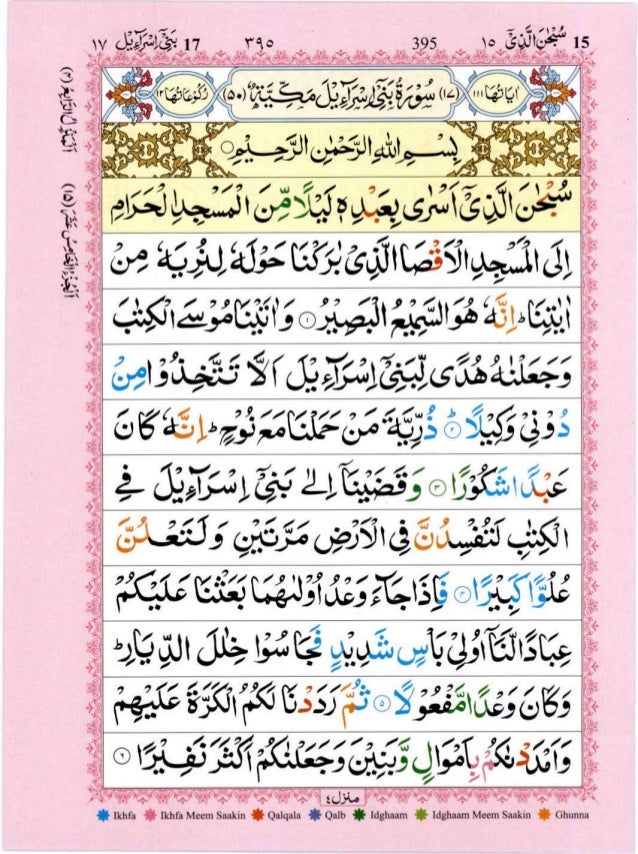 15 سُبْحٰنَ الَّذِیْۤ ١٥ 395 ٣٩٥ 17 بَنِیْۤ اِسْرَآءِیْل ١٧
اٰیَاتُهَا ١١١ (١٧) سُوْرَةُ بَنِیْۤ اِسْرَآءِیْلَ مَكِّیَّةٌ (٥٠) رُكُوْعَاتُهَا ١٢
بِسْمِ اللّٰهِ الرَّحْمٰنِ الرَّحِیْمِ
سُبْحٰنَ الَّذِیْۤ اَسْرٰی بِعَبْدِهٖ لَیْلًا مِّنَ الْمَسْجِدِ الْحَرَامِ
اِلَی الْمَسْجِدِ الْاَقْصَا الَّذِیْ بٰرَكْنَا حَوْلَهٗ لِنُرِیَهٗ مِنْ
اٰیٰتِنَا ؕ اِنَّهٗ هُوَ السَّمِیْعُ الْبَصِیْرُ ١ وَ اٰتَیْنَا مُوْسَی الْكِتٰبَ
وَ جَعَلْنٰهُ هُدًی لِّبَنِیْۤ اِسْرَآءِیْلَ اَلَّا تَتَّخِذُوْا مِنْ
دُوْنِیْ وَكِیْلًا ؕ ٢ ذُرِّیَّةَ مَنْ حَمَلْنَا مَعَ نُوْحٍ ؕ اِنَّهٗ كَانَ
عَبْدًا شَكُوْرًا ٣ وَ قَضَیْنَاۤ اِلٰی بَنِیْۤ اِسْرَآءِیْلَ فِی
الْكِتٰبِ لَتُفْسِدُنَّ فِی الْاَرْضِ مَرَّتَیْنِ وَ لَتَعْلُنَّ
عُلُوًّا كَبِیْرًا ٤ فَاِذَا جَآءَ وَعْدُ اُوْلٰىهُمَا بَعَثْنَا عَلَیْكُمْ
عِبَادًا لَّنَاۤ اُولِیْ بَاْسٍ شَدِیْدٍ فَجَاسُوْا خِلٰلَ الدِّیَارِ ؕ
وَ كَانَ وَعْدًا مَّفْعُوْلًا ٥ ثُمَّ رَدَدْنَا لَكُمُ الْكَرَّةَ عَلَیْهِمْ
وَ اَمْدَدْنٰكُمْ بِاَمْوَالٍ وَّ بَنِیْنَ وَ جَعَلْنٰكُمْ اَكْثَرَ نَفِیْرًا ٦
منزل ٤
Ikhfa Ikhfa Meem Saakin Qalqala Qalb Idghaam Idghaam Meem Saakin Ghunna
اَلْمَنْزِلُ الرَّابِعُ (٤)
اَلْجُزْءُ الْخَامِسُ عَشَرَ (١٥)